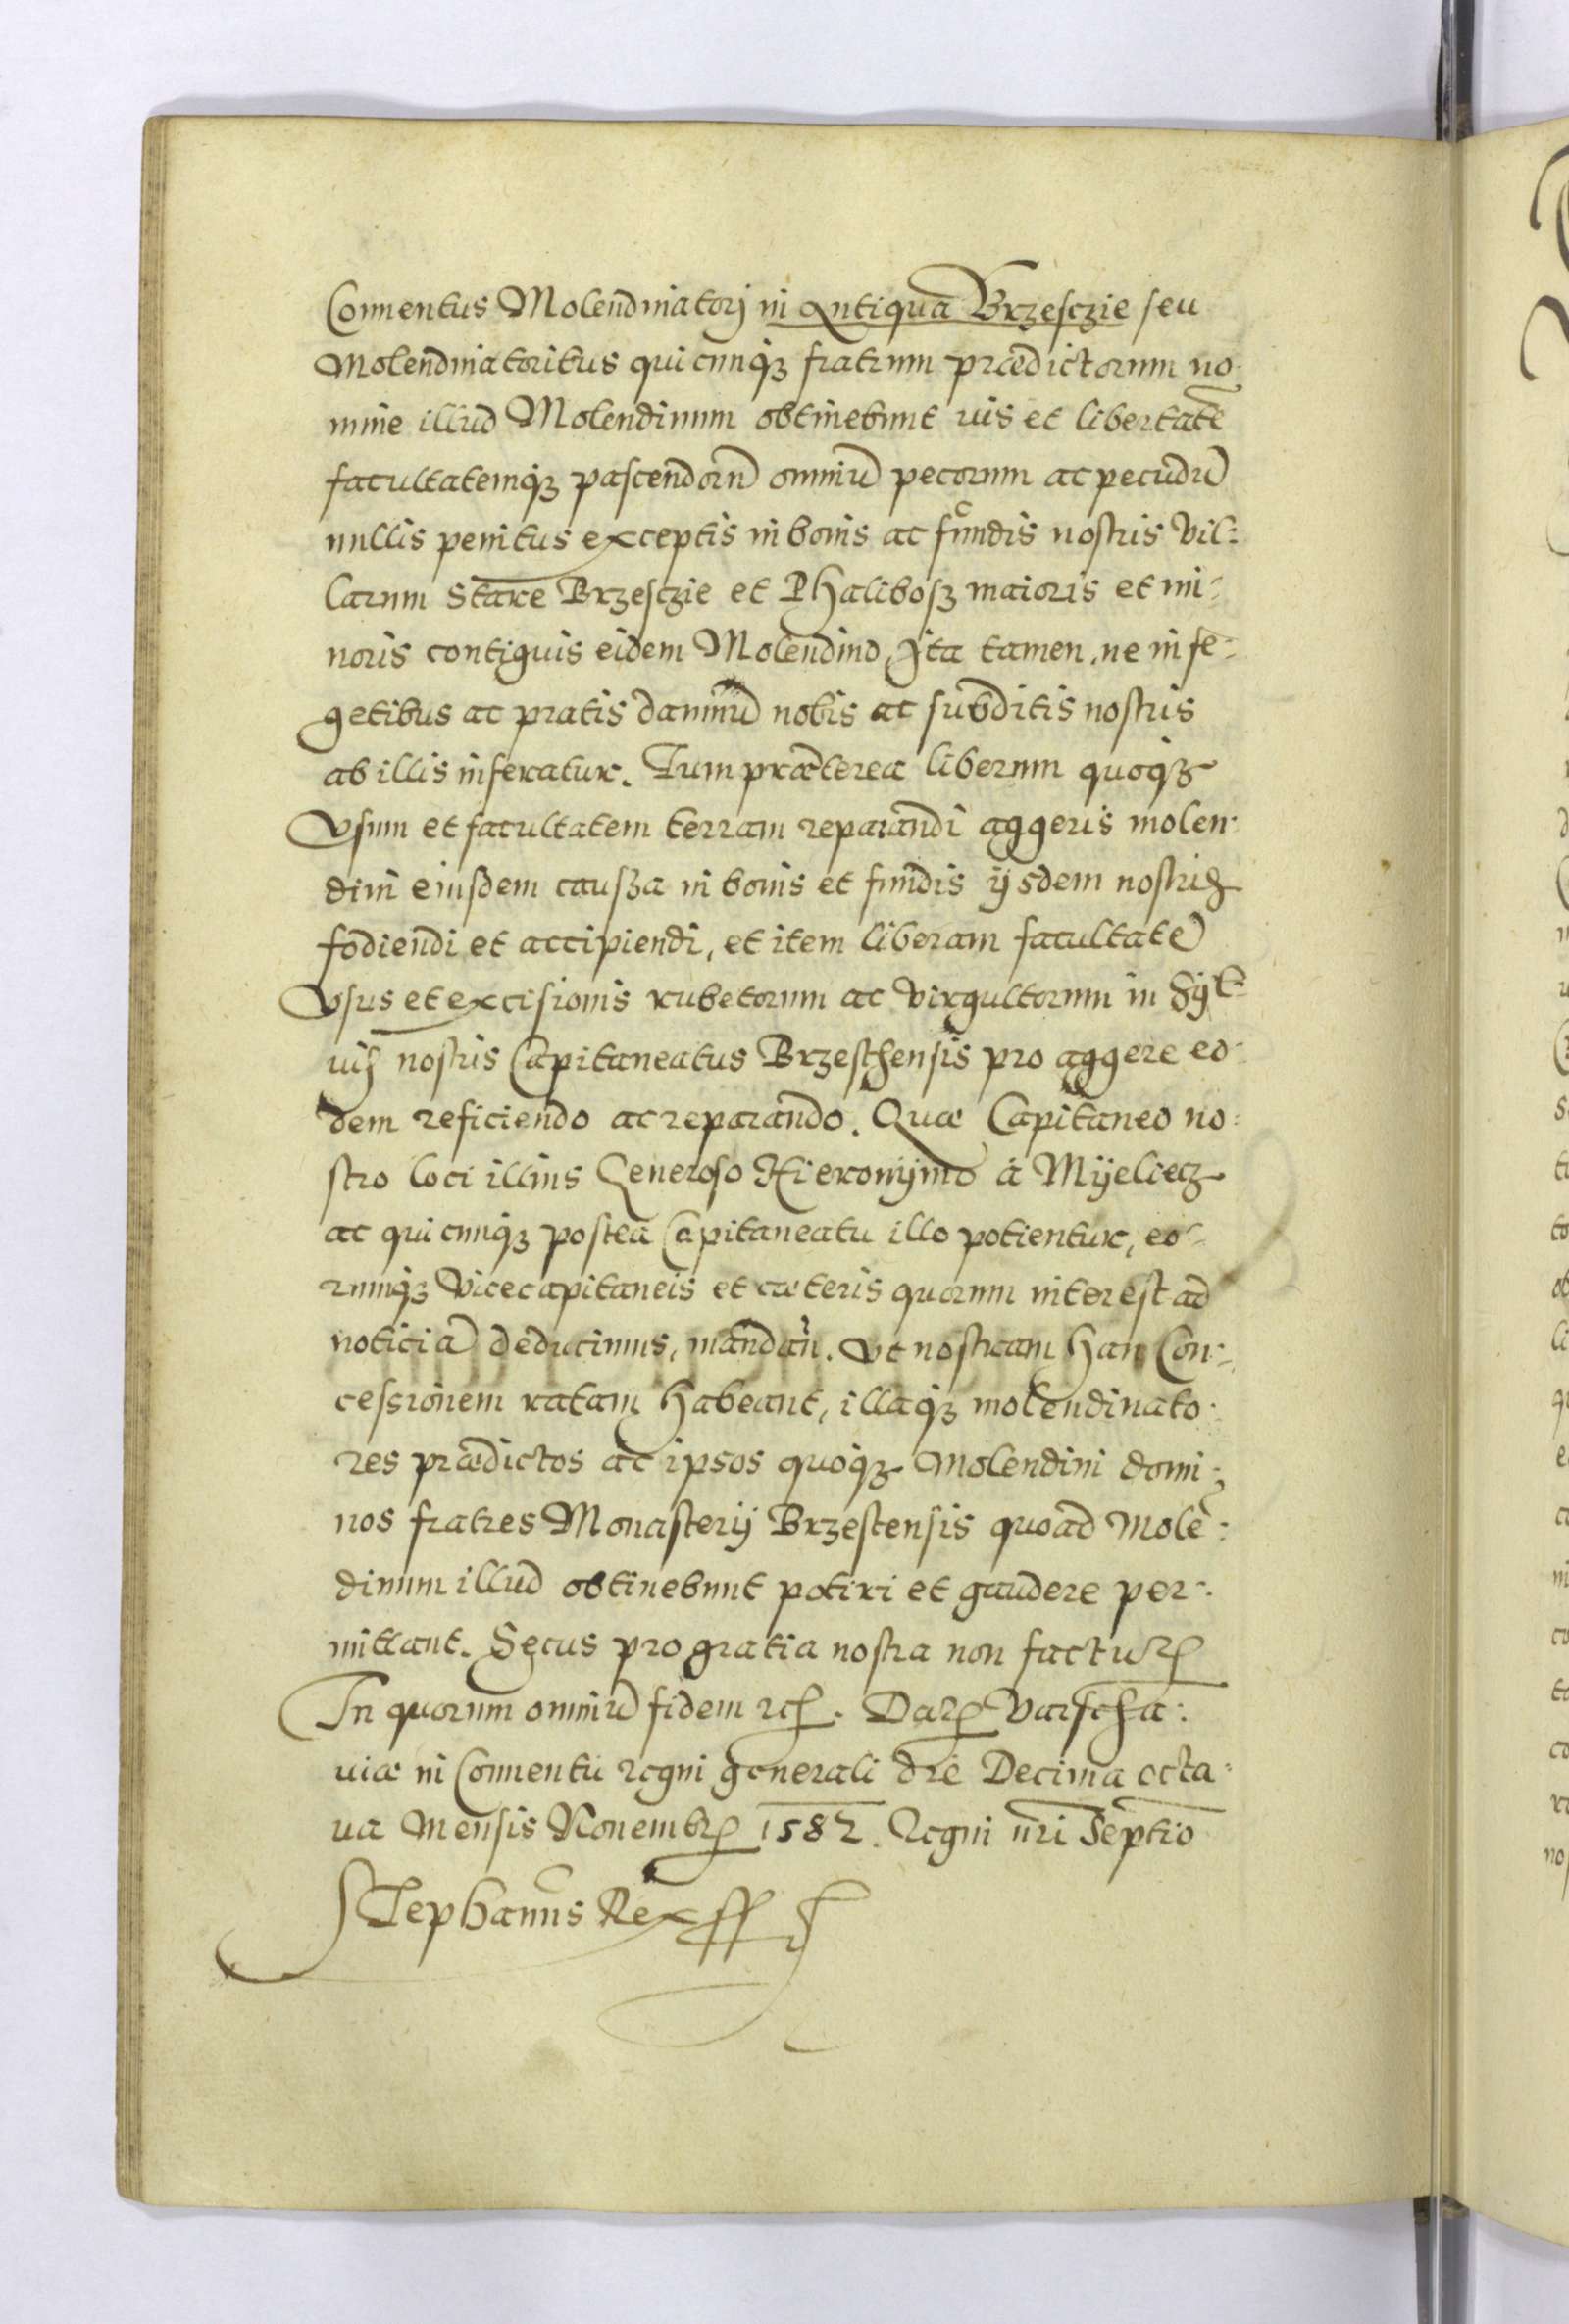 Conuentus Molendinatorj in Antiqua Brzesczie seu
Molendinatoribus quicunqꝫ fratrum prædictorum no-
mine illud Molendinum obtinebunt ius et libertatē
facultatemqꝫ pascendorū omniū pecorum ac pecudū
nullis penitus exceptis in bonis ac fundis nostris Vil:
larum Stare Brzesczie et Phalibosz maioris et mi-
noris contiguis eidem Molendino, Ita tamen, ne in se-
getibus ac pratis damnū nobis ac subditis nostris
ab illis inferatur. Tum præterea liberum quoqꝫ
Vsum et facultatem terram reparandi aggeris molen-
dini eiusdem caussa in bonis et fundis ijsdem nostris
fodiendi et accipiendi, et item liberam facultatē
Vsus et excisionis rubetorum ac Virgultorum in Syl-
uis nostris Capitaneatus Brzesthensis pro aggere eo-
dem reficiendo ac reparando. Quæ Capitaneo no:
stro loci illius Generoso Hieronÿmo à Mÿelecz
ac quicunqꝫ postea Capitaneatu illo potientur, eo-
rumqꝫ Vicecapitaneis et cæteris quorum interest ad
noticiā deducimus, mandan̄. Vt nostram hanc Con-
cessionem ratam habeant, illaqꝫ molendinato-
res prædictos ac ipsos quoqꝫ Molendini domi-
nos fratres Monasterij Brzestensis quoad Molē:
dinum illud obtinebunt potiri et gaudere per-
mittant. Secus pro gratia nostra non facturꝭ
In quorum omniū fidem etc. Datꝭ Varscha:
uiæ in Conuentu regni generali die Decima octa-
ua Mensis Nouembrꝭ 1582. Regni nr̄i Septīo
Stephanus Rex sst